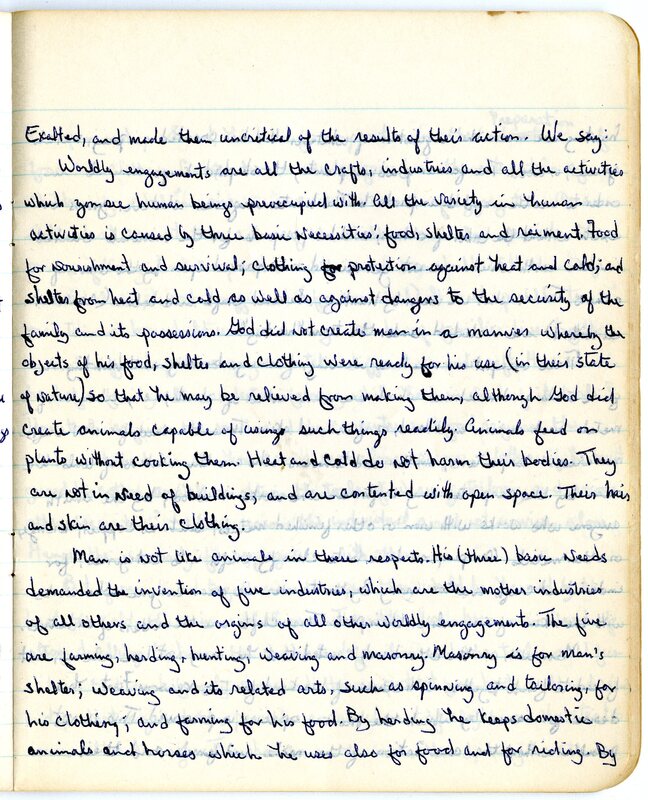 Exalted, and made them uncritical of the results of their action. We say:
Worldly engagements are all the crafts, industries and all the activities
which you see human beings preoccupied with. All the variety in human
activities is caused by three basic necessities: food, shelter and raiment. Food
for nourishment and survival; clothing for protection against heat and cold; and
shelter from heat and cold as well as against dangers to the security of the
family and its possessions. God did not create man in a manner whereby the
objects of his food, shelter and clothing were ready for his use (in their state
of nature) so that he may be relieved from making them, although God did
create animals capable of using such things readily. Animals feed on
plants without cooking them. Heat and cold do not harm their bodies. They
are not in need of buildings, and are contented with open space. Their hair
and skin are their clothing.
Man is not like animals in these respects. His (three) basic needs
demanded the invention of five industries, which are the mother industries
of all others and the origins of all other worldly engagements. The five
are farming, herding, hunting, weaving and masonry. Masonry is for man's
shelter; weaving and its related arts, such as spinning and tailoring, for
his clothing; and farming for his food. By herding he keeps domestic
animals and horses which he uses also for food and for riding. By